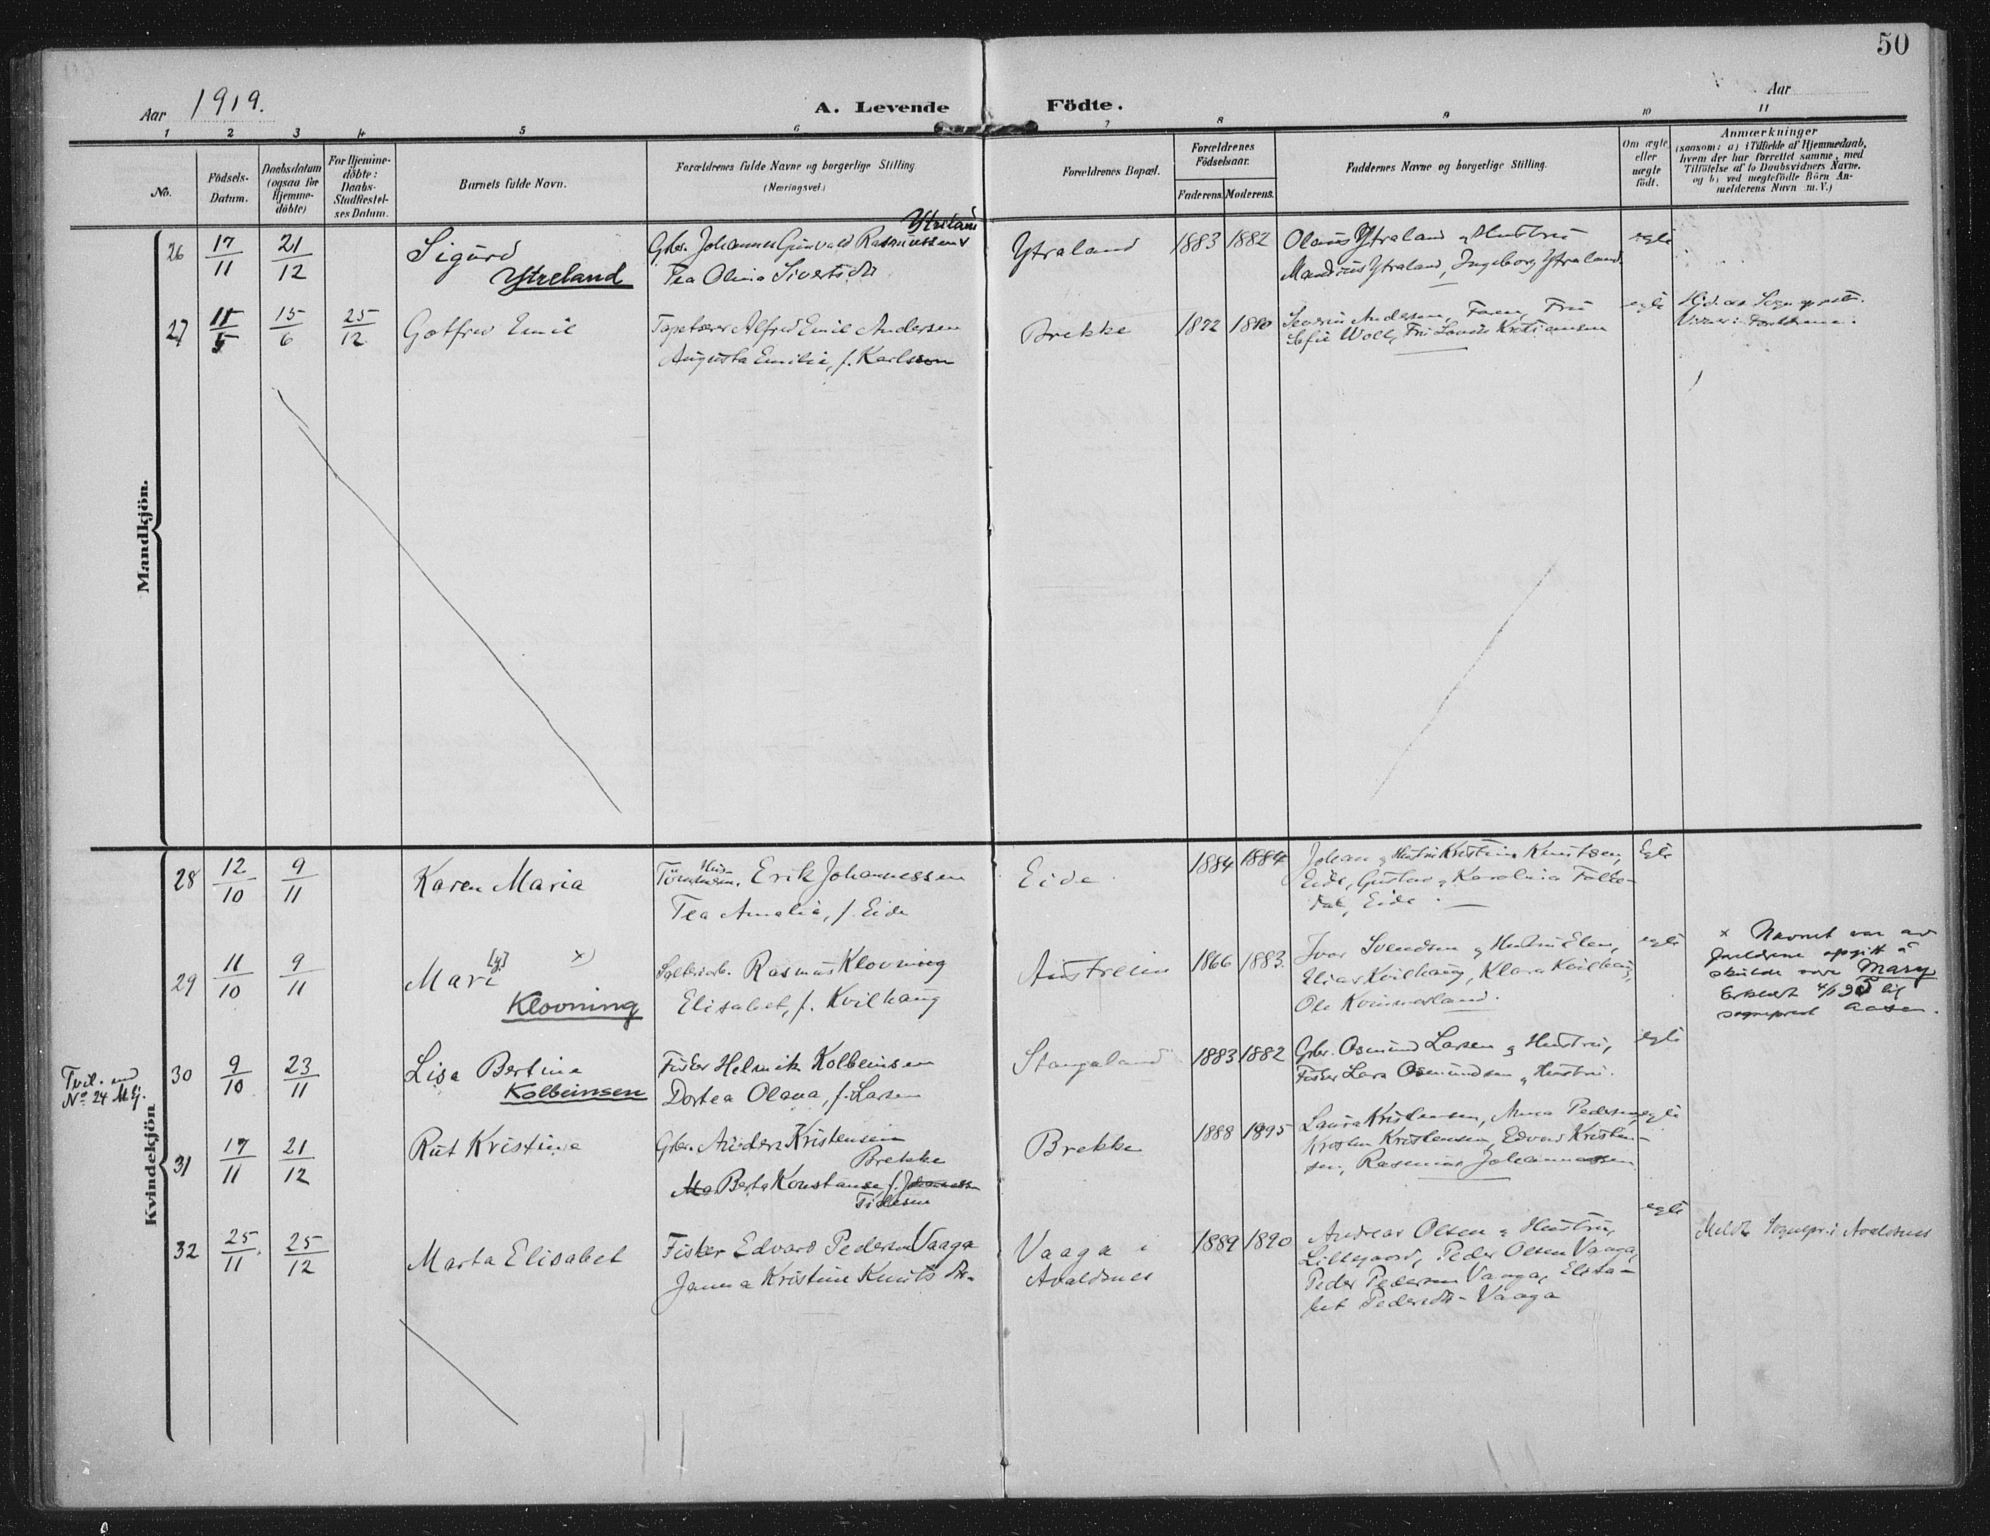 50
Aar 1919.
A. Levende Födte.
Aar
1 2 3 4 5 6 7 8 9 10 11
No.
Födsels-
Datum.
Daabsdatum
(ogsaa for
Hjemme-
döbte)
For Hjemme-
döbte:
Daabs-
Stadfæstel-
ses Datum.
Barnets fulde Navn.
Forældrenes fulde Navne og borgerlige Stilling
(Næringsvei.)
Forældrenes Bopæl.
Forældrenes
Födselsaar.
Faderens. Moderens.
Faddernes Navne og borgerlige Stilling.
Om ægte
eller
uægte
födt.
Anmærkninger
(saasom: a) i Tilfælde af Hjemmedaab,
hvem der har forrettet samme, med
Tilföielse af to Daabsvidners Navne,
og b) ved uægtefödte Börn An-
melderens Navn m. V.)
Mandkjön.
26 17/11 21/12
Sigurd
Ytreland
Ytreland
Gbr. Johannes Gunvald Rasmussen
Tea Olina Sivertsdtr
Ytraland
1883 1882
Olaus Ytraland og Hustru
Mandrius Ytraland, Ingeborg Ytraland
egte
27 15/6 25/12
Gotfred Emil
Tapetserer Alfred Emil Andersen
Augusta Emilie, f. Karlsson
Brekke
1872
Severin Andersen, Fru
Sofie Woll, Fru Lovise Kristiansen
egte
Kvindekjön
28 12/10 9/11
Karen Maria
Erik Johannessen
Tea Amalie, f. Eide
Eide
1884 1884
Johan og Hustru Kristine Knutsen,
Eide, Gustav og Karolina Falke-
dal, Eide.
Egte
29 11/10 9/11
Mari [y] x)
Klovning
Rasmus Klovning
Elisabet, f. Kvilhaug
Austreim
1866 1883.
Ivar Svendsen og Hustru Elen,
Elias Kvilhaug, Klara Kvilhaug,
Ole Kvinnesland.
egte
x Navnet var av
foreldrene opgitt å
skulde være Mary
Erklært
sogneprest Aasen.
Tvil. med
No 24 M.kj.
30 9/10 23/11
Lisa Bertine
Kolbeinsen
Fisker Helmik Kolbeinsen
Dortea Olava, f. Larsen
Stangeland
1883 1882
Gbr. Osmund Larsen og Hustru,
Fisker Lars Osmundsen og Hustru.
egte
31 17/11 21/12
Rut Kristine
Gbr. Anders Kristensen
Brekke
Berta Konstanse f. Johannessen
Brekke
1888 1895
Laura Kristensen, Anna Pedersen,
Kristen Kristensen, Edvard Kristen-
sen, Rasmus Johannessen
egte
32 25/11. 25/12
Marta Elisabet
Fisker Edvard Pedersen Vaaga
Janna Kristine Knutsdtr.
Vaaga i
Avaldsnes
1889 1890
Andreas Olsen og Hustru,
Peder Olsen Vaaga,
Peder Pedersen Vaaga, Elisa-
bet Pedersdtr. Vaaga
egte
Meldt Sognepr. i Avaldsnes